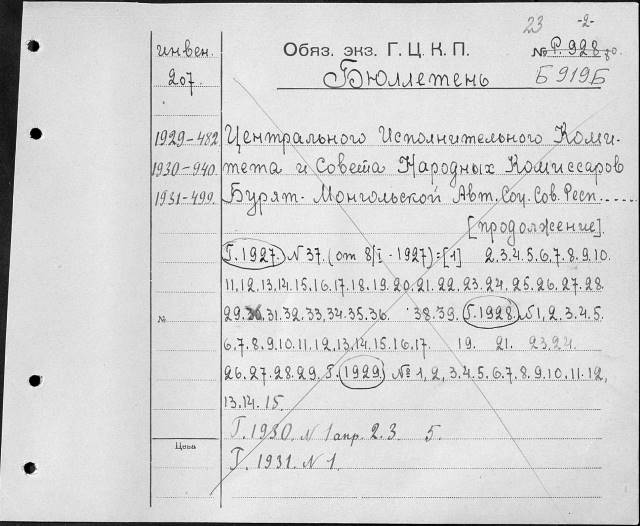 23 -2-
инвен. Обяз. экз. Г. Ц. К. П. № Р. 928
207. Бюллетень Б919Б
1929-482 Центрального Исполнительного Коми-
1930-940. тета и Совета Народных Комиссаров
1931-499. Бурят-Монгольской Авт. Соц. Сов. Респ.....
[продолжение].
Г. 1927. N 37. (от 8/I-1927)=[1] 2.3.4.5.6.7.8.9.10.
11.12.13.14.15.16.17.18.19.20.21.22.23.24.25.26.27.28.
№ 29. 31.32.33.34.35.36. 38.39. Г. 1928. N 1,2.3.4.5.
6.7.8.9.10.11.12.13.14.15.16.17. 19. 21. 23.24.
26.27.28.29. Г. 1929. № 1,2,3.4.5.6.7.8.9.10.11.12,
13.14.15.
Г. 1930. N 1 апр. 2.3. 5.
Цена
Г. 1931. N 1.